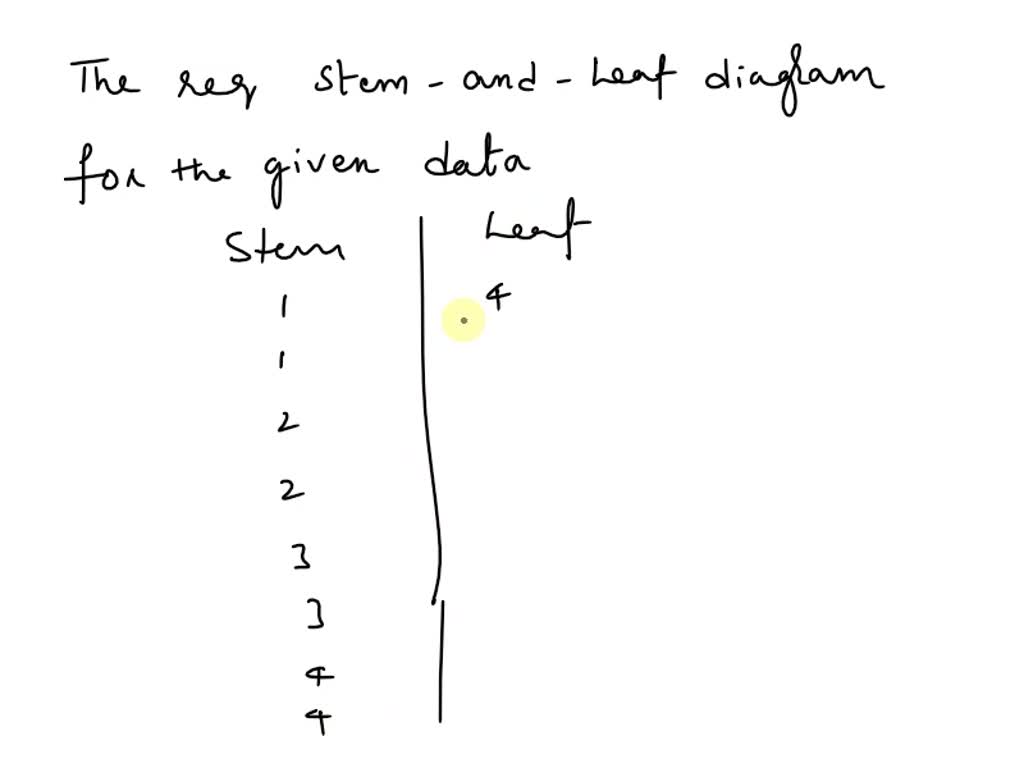 The req stem-and-Leaf diagram
for the given data
Stem Leaf
1 4
1
2
2
3
3
4
4